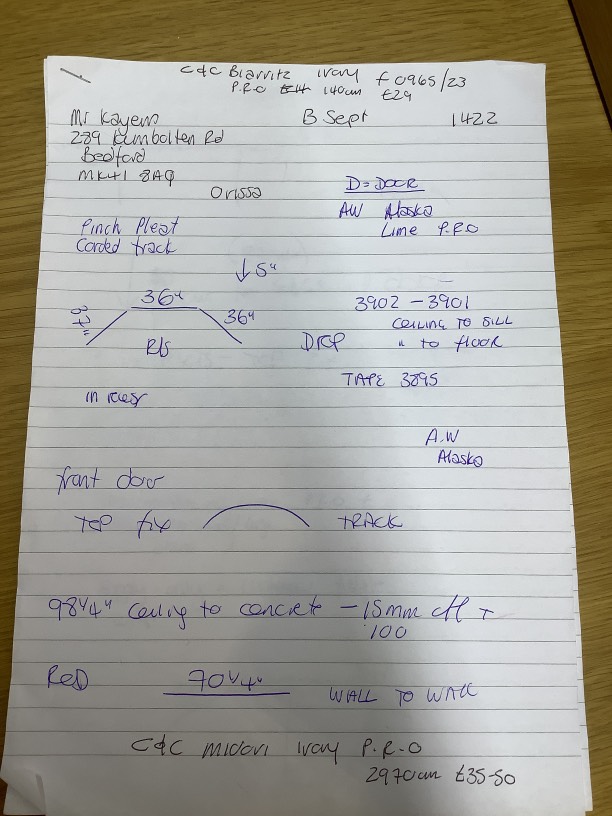 C&C Biarritz ivory F0965/23
P.R.O £14 140cm £29
Mr Kayens B Sept 1422
289 Kimbolten Rd
Bedford
MK41 8AQ
Orissa
D=DOOR
AW Alaska
Lime P.R.O
Pinch Pleat
Corded track
↓5"
36"
36"
R/s
3902 - 3901
CEILING TO SILL
DROP " to floor
TAPE 3895
in recess
A.W
Alaska
front door
TOP fix TRACK
98 1/4" Ceiling to concrete - 15mm off +
100
RED 70 1/4" WALL TO WALL
C&C midori ivory P.R.O
2970cm £35-50